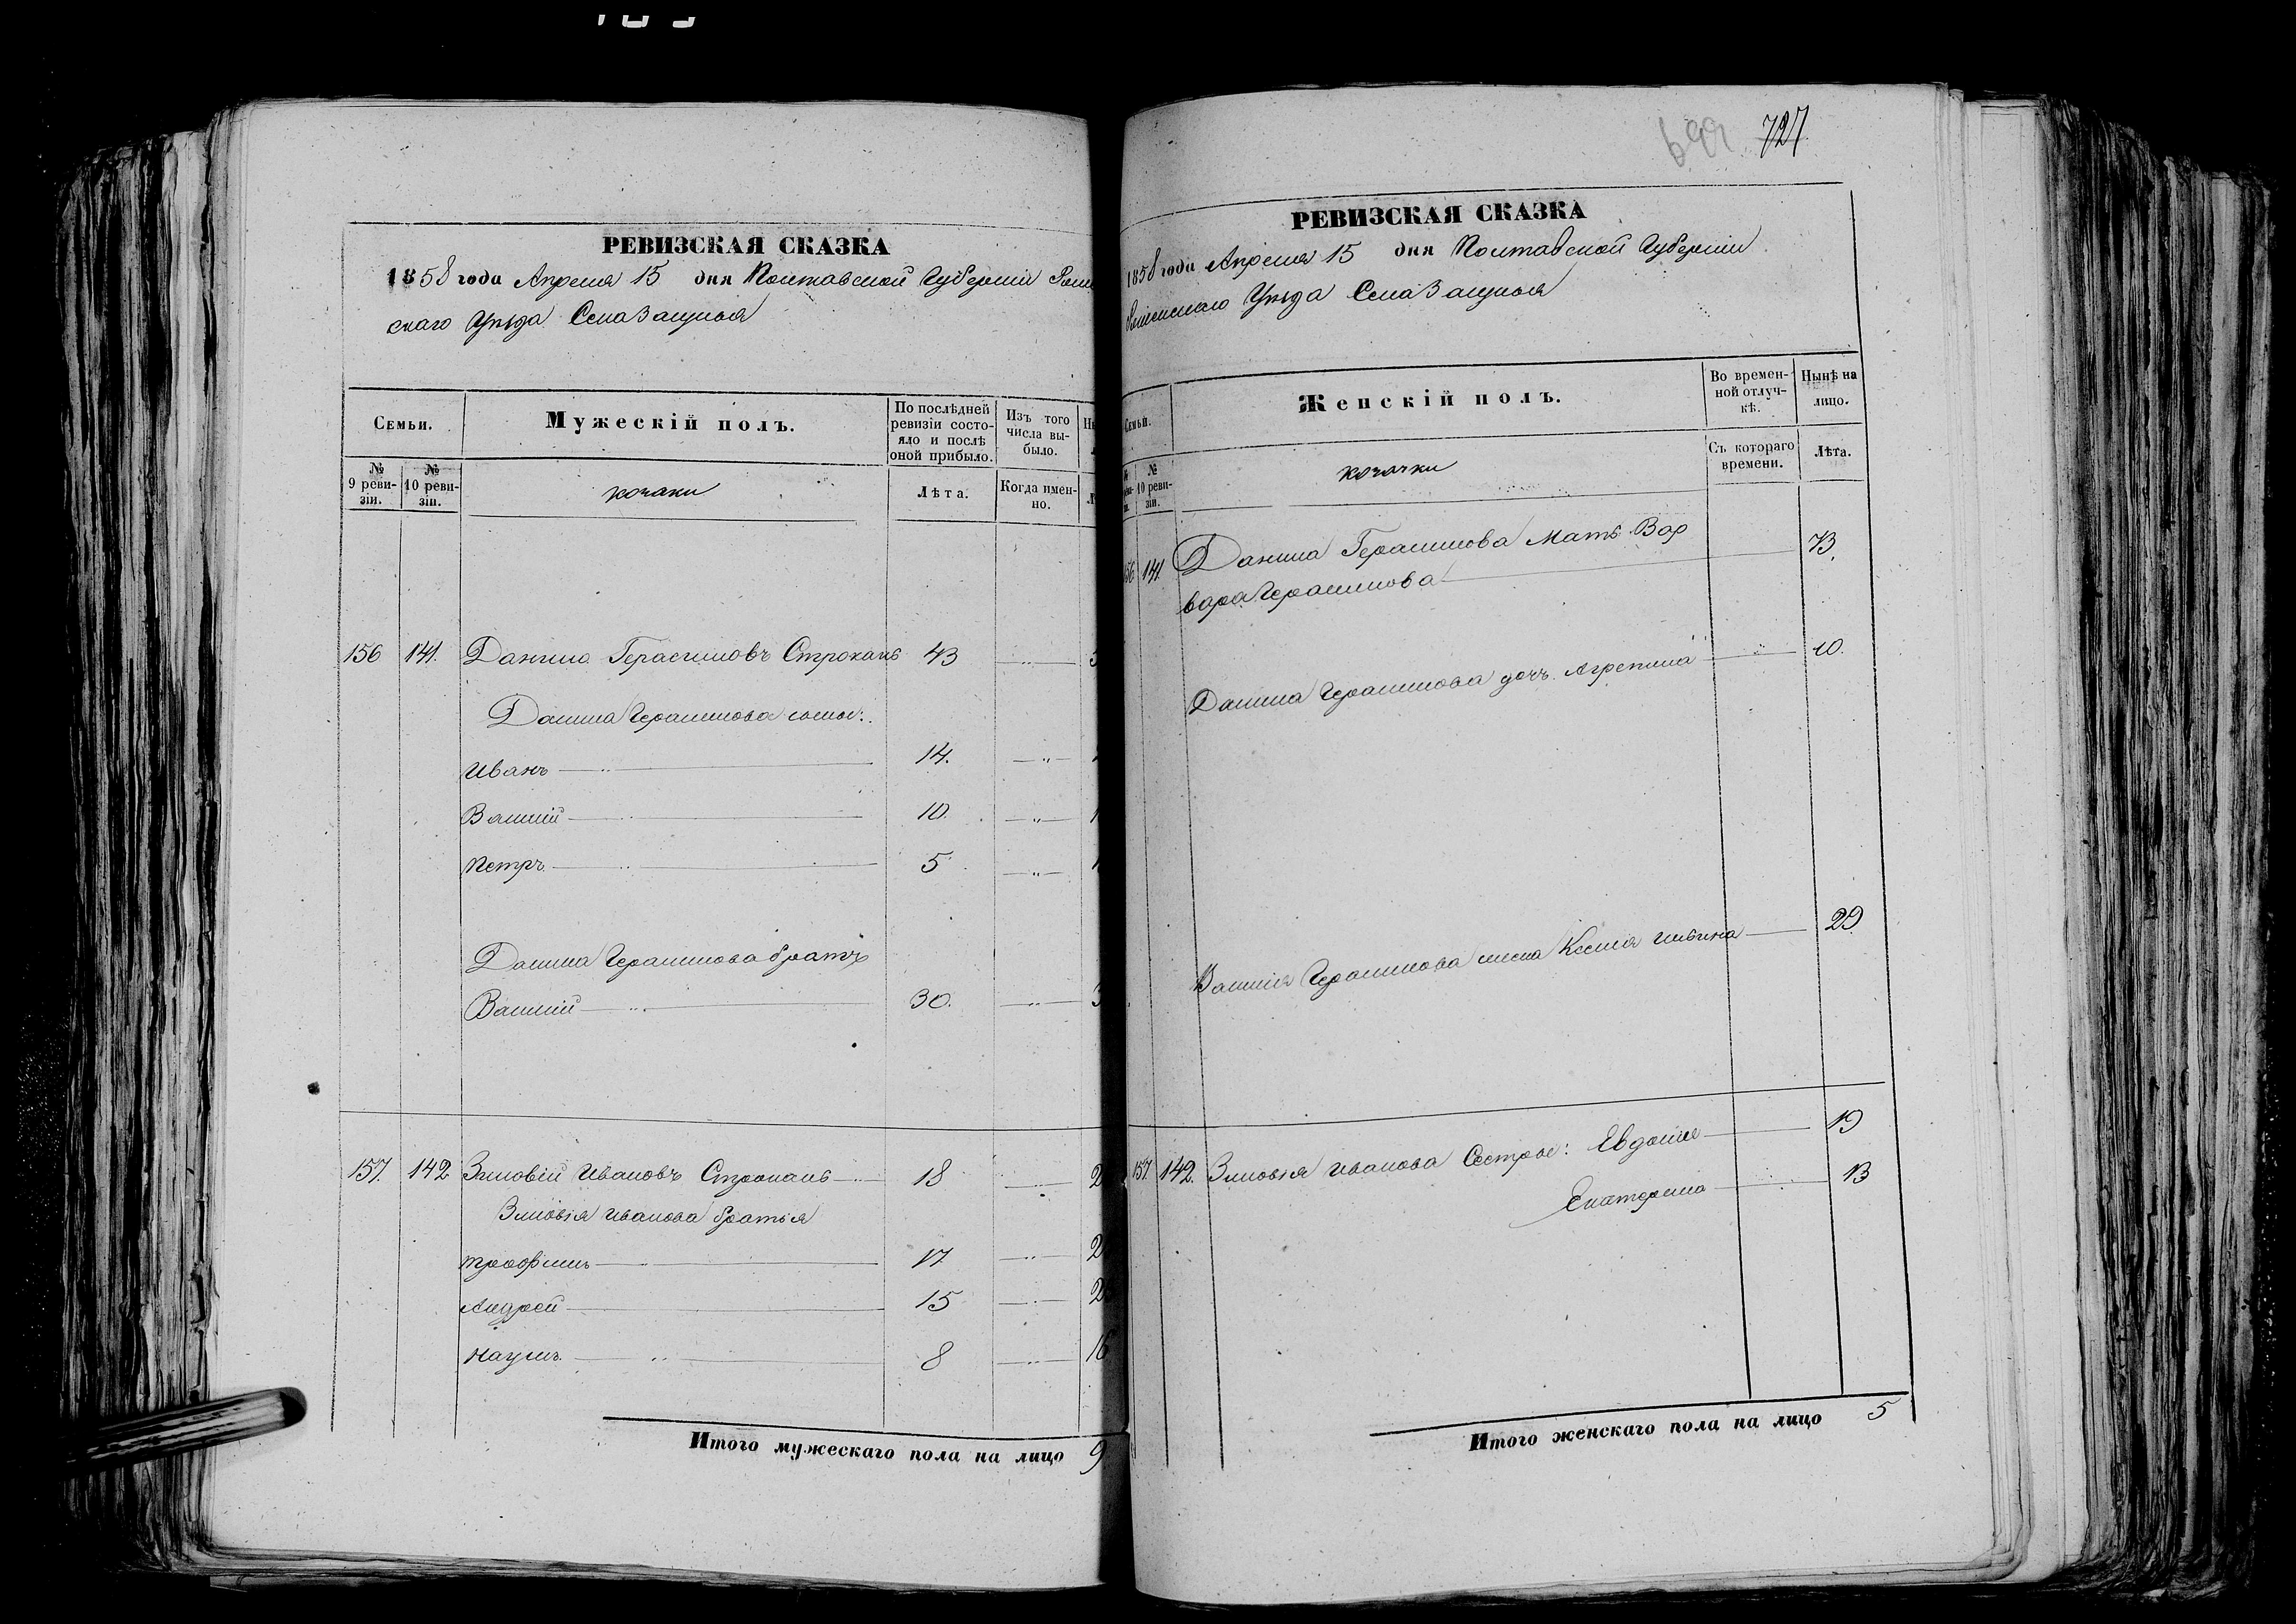 РЕВИЗСКАЯ СКАЗКА
1858 года Апреля 15 дня Полтавской Губернии
скаго Уѣзда Села
Семьи.
Мужескій полъ.
По послѣдней ревизіи состояло и послѣ оной прибыло.
Изъ того числа выбыло.
№ 9 ревизіи.
№ 10 ревизіи.
козаки
Лѣта.
Когда именно.
156 141. Данило Герасимовъ Строкань 43
Данила Герасимова сыны:
Иванъ 14.
Василій 10.
Петръ 5
Данила Герасимова братъ
Василій 30.
157. 142 Зиновій Ивановъ Строкань 18
Зиновія Иванова братья
Трофимъ 17
Андрей 15
Наумъ 8 16
Итого мужескаго пола на лицо 9
699 727
РЕВИЗСКАЯ СКАЗКА
1858 года Апреля 15 дня Полтавской Губерніи
Уѣзда Села
Семьи.
Женскій полъ.
Во временной отлучкѣ.
Нынѣ на лицо.
№ 10 ревизіи.
козачки
Съ котораго времени.
Лѣта.
156 141 Данила Герасимова Мать Вар 73.
вара Герасимова
Данила Герасимова дочь Агрепина 10.
Василія Герасимова жена Ксенія 29
157. 142. Зиновія Иванова Сестры: Евдокія 19
Екатерина 13
Итого женскаго пола на лицо 5